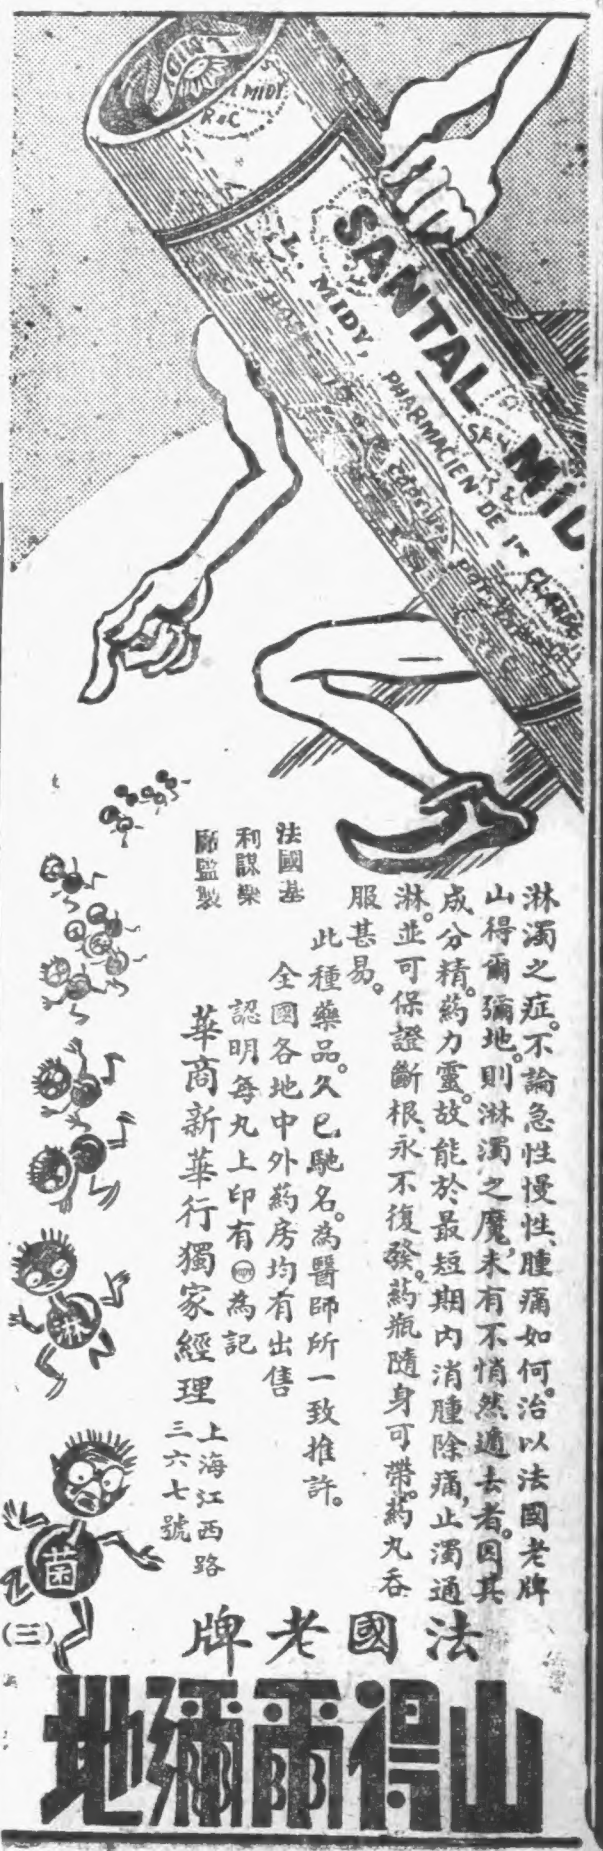 MIDY
R&C
SANTAL MID
L. MIDY, PHARMACIEN DE 1re CLASSE
淋濁之症。不論急性慢性、腫痛如何。治以法國老牌
山得爾彌地。則淋濁之魔，未有不悄然遁去者。因其
成分精。葯力靈。故能於最短期內消腫除痛，止濁通
淋。並可保證斷根、永不復發。葯瓶隨身可帶。葯丸吞
服甚易。
此種藥品。久已馳名。為醫師所一致推許。
全國各地中外葯房均有出售
認明每丸上印有MIDY為記
法國基
利謀藥
廠監製
華商新華行獨家經理
上海江西路
三六七號
淋
菌
(三)
法國老牌
山得爾彌地